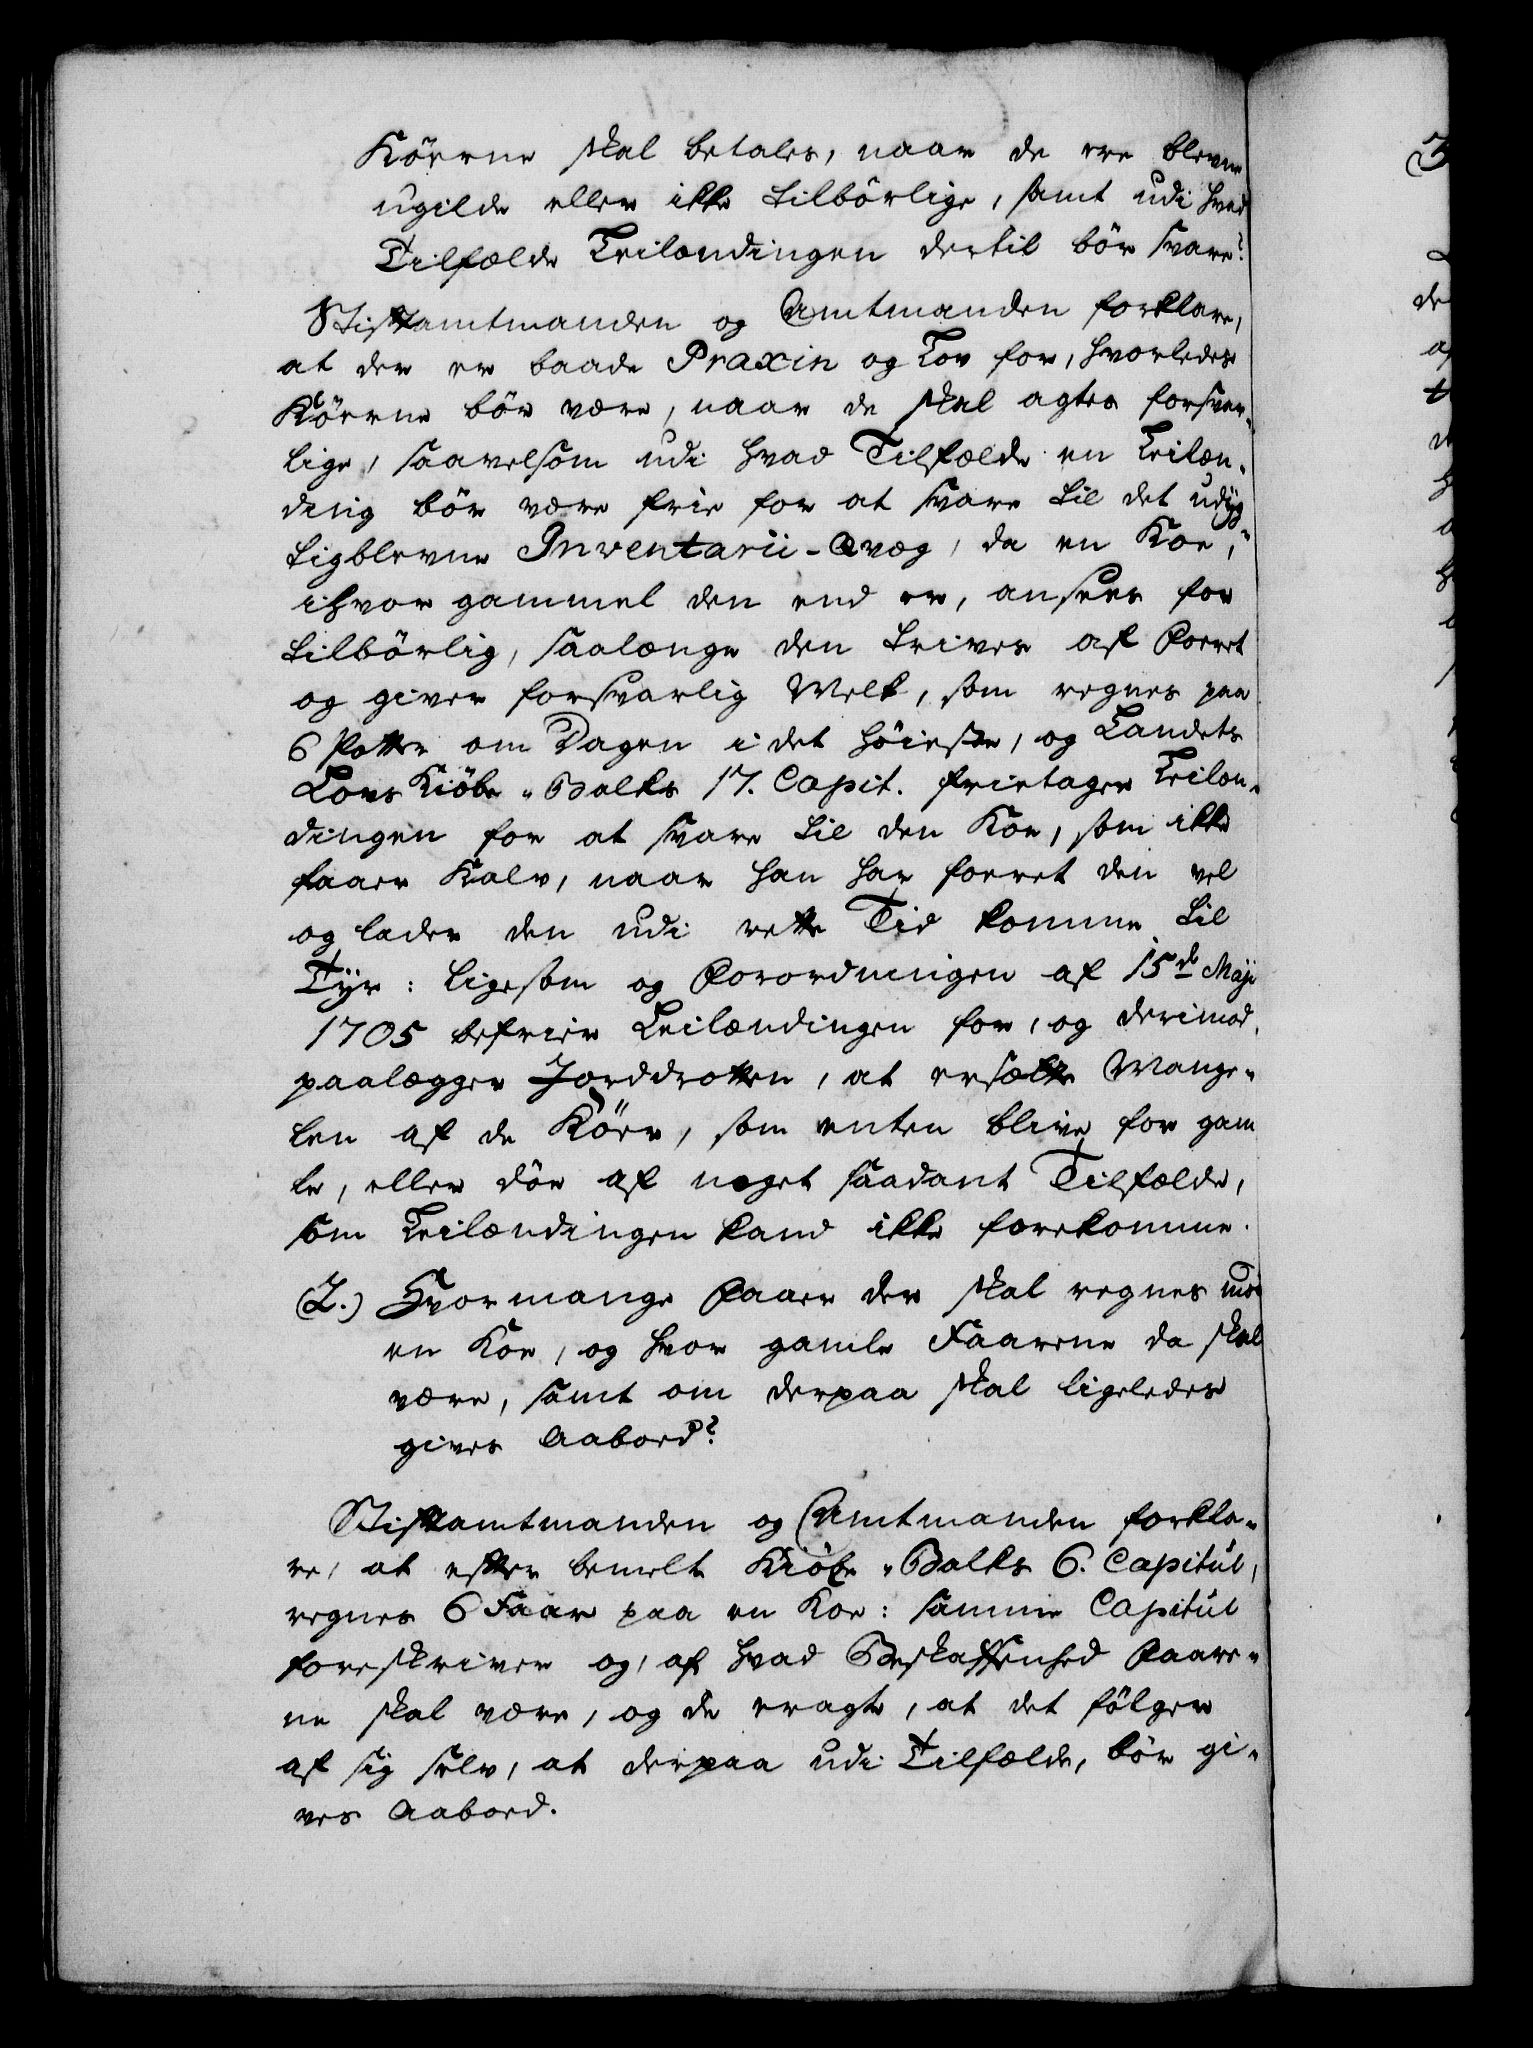 Köerne skal betales, naar de ere blevne
ugilde eller ikke tilbörlige, samt udi hvad
Tilfælde Leilændingen dertil bör svare?
Stiftamtmanden og Amtmanden forklare,
at der er baade Praxin og Lov for, hvorledes
Köerne bör være, naar de skal agtes forsvar-
lige, saavelsom udi hvad Tilfælde en Leilæn-
ding bör være frie for at svare til det udÿg-
tigblevne Inventarii-Qvæg, da en Koe,
ihvor gammel den end er, ansees for
tilbörlig, saalænge den trives af Foeret
og giver forsvarlig Melk, som regnes paa
6 Potter om Dagen i det höieste, og Landets
Lovs Kiöbe-Balks 17. Capit. frietager Leilæn-
dingen for at svare til den Koe, som ikke
faaer Kalv, naar han har foeret den vel
og lader den udi rette Tid komme til
Tÿr: ligesom og Forordningen af 15de Maji
1705 befrier Leilændingen for, og derimod
paalægger Jorddrotten, at ersætte Mange-
len af de Köer, som enten blive for gam
le, eller döe af noget saadant Tilfælde,
som Leilændingen kand ikke forekomme.
(2.) Hvormange Faaer der skal regnes imod
en Koe, og hvor gamle Faarene da skal
være, samt om derpaa skal ligeledes
gives Aaboed?
Stiftamtmanden og Amtmanden forkla-
re, at efter bemelte Kiöbe-Balks 6. Capitul,
regnes 6 Faar paa en Koe: samme Capitul
foreskriver og, af hvad Beskaffenhed Faare-
ne skal være, og de eragte, at det fölger
af sig selv, at derpaa udi Tilfælde, bör gi-
ves Aaboed.